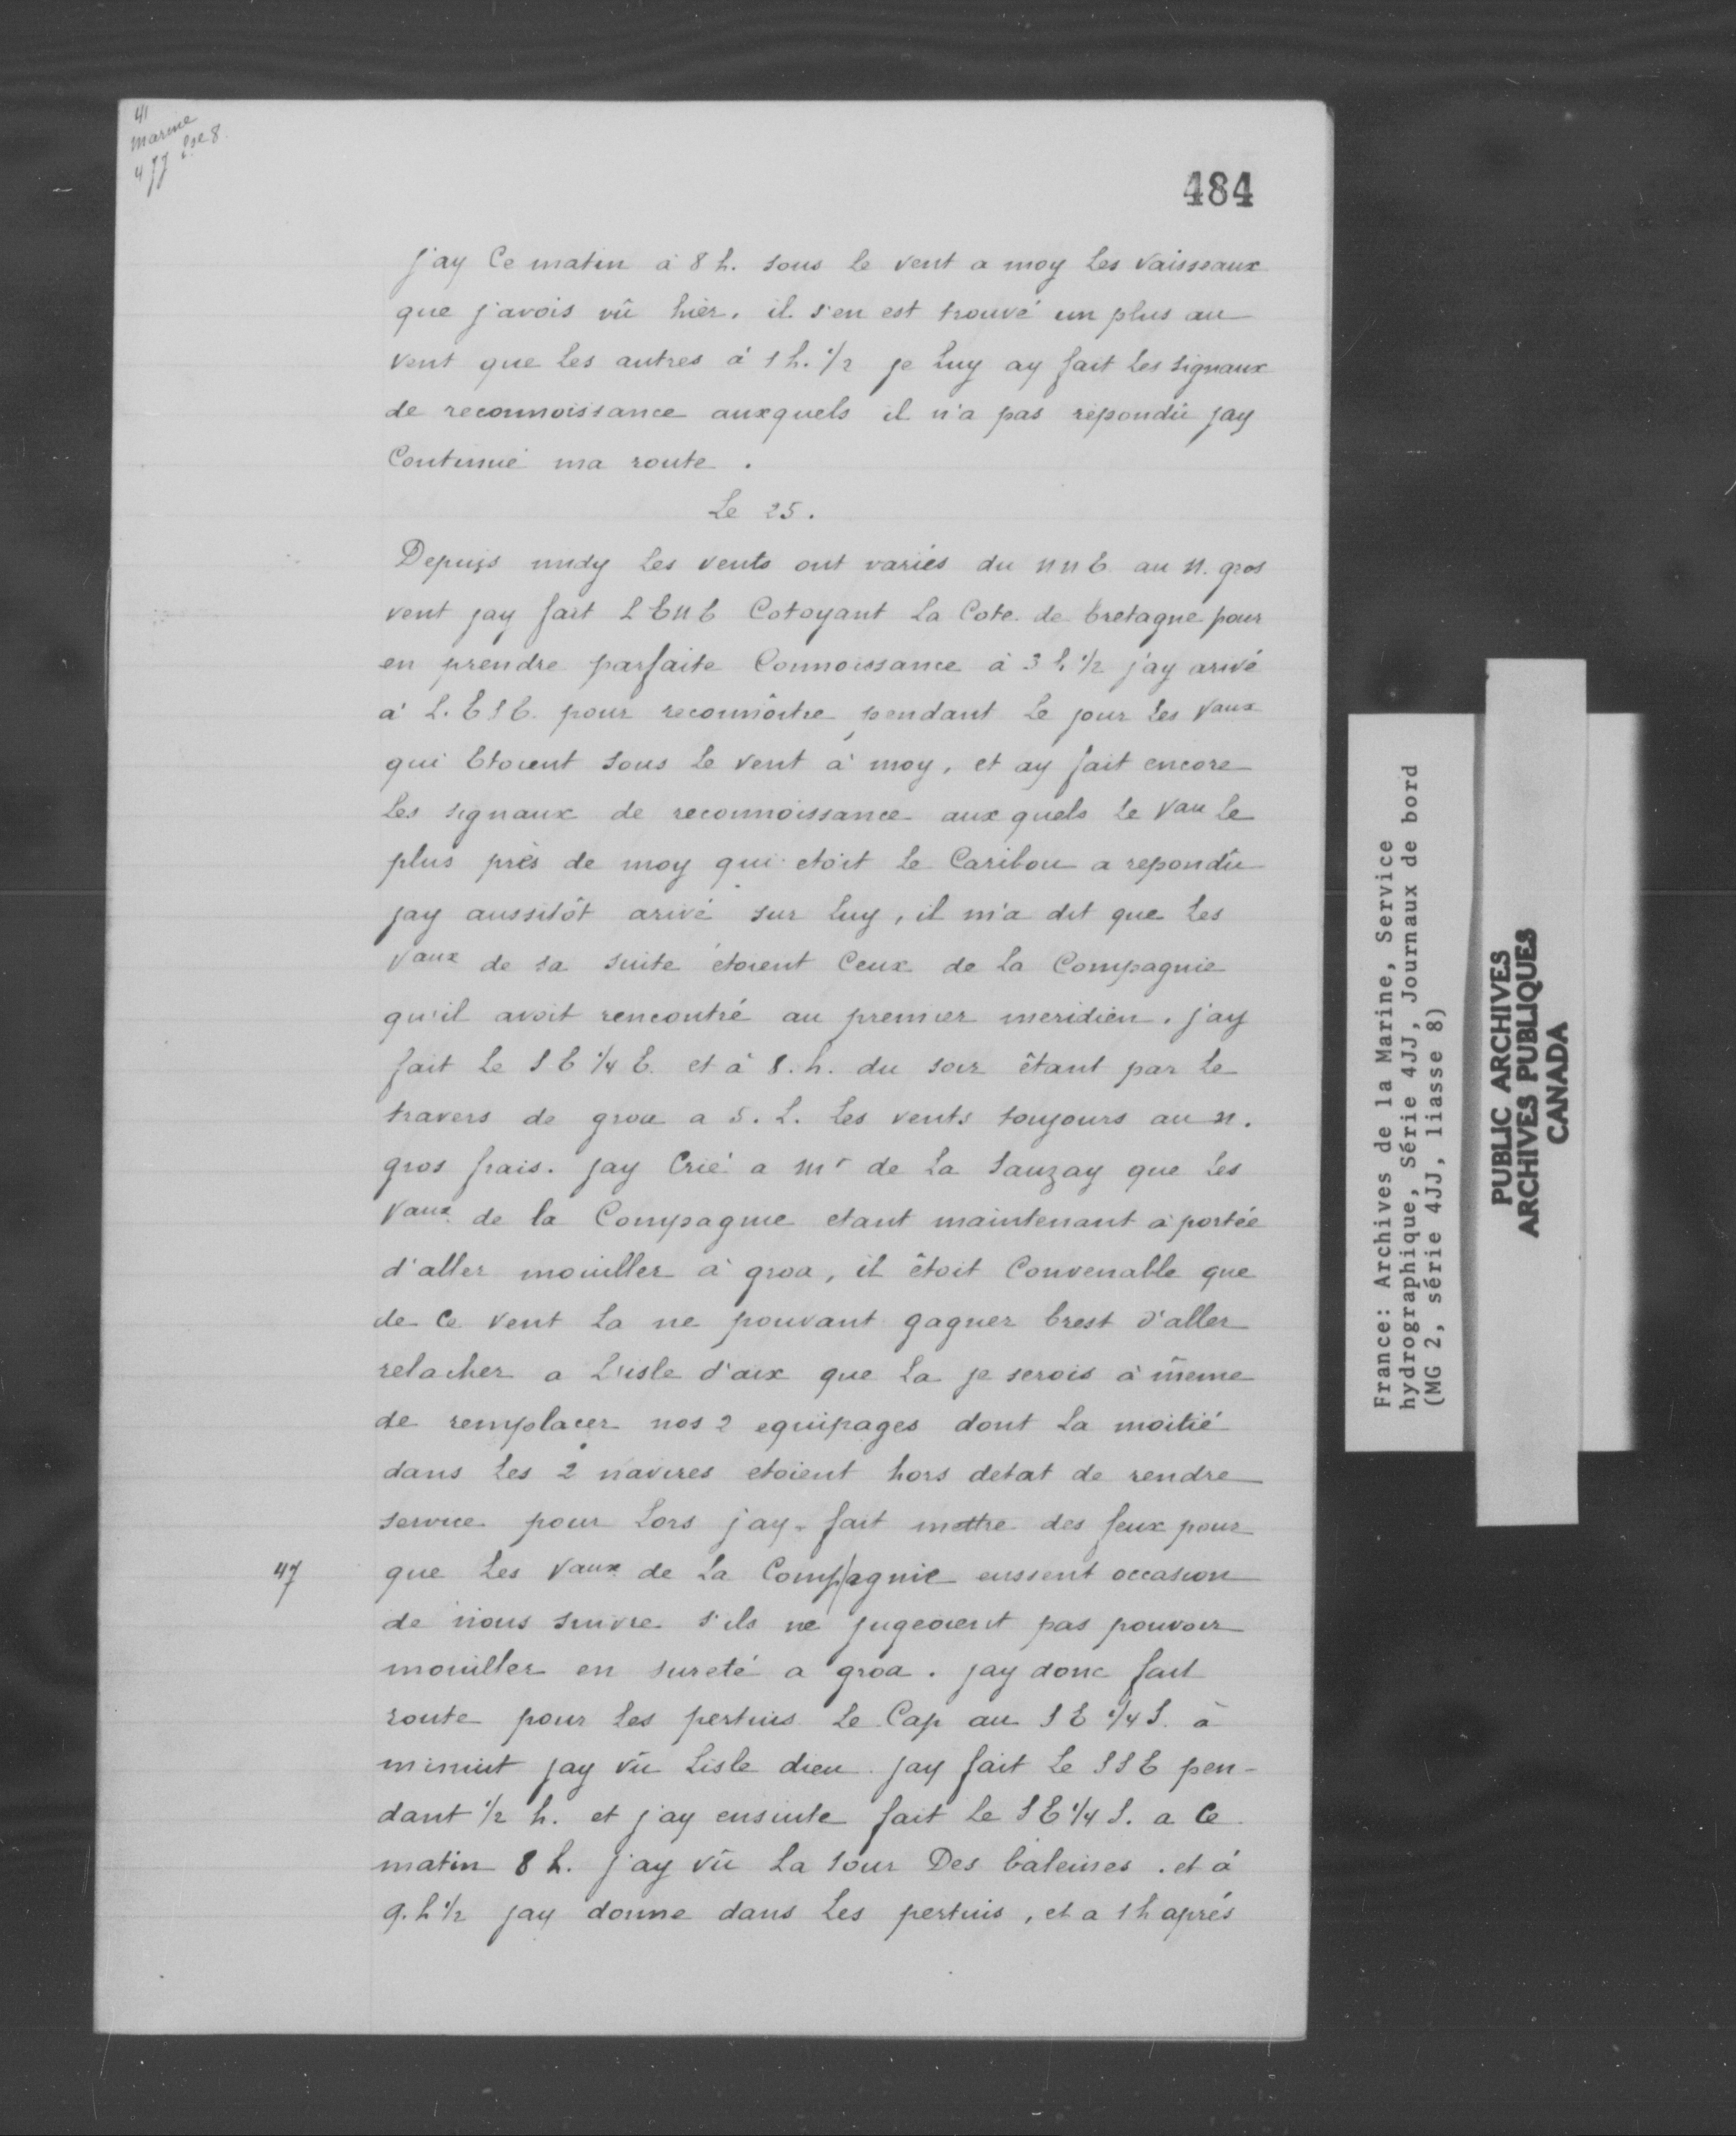 41
marine
4JJ Lse 8.
484
j'ay Ce matin à 8 h. sous le vent a moy les Vaisseaux
que j'avois vû hier. il s'en est trouvé un plus au
vent que les autres à 1 h. 1/2 je luy ay fait les signaux
de reconnoissance auxquels il n'a pas repondû jay
Continué ma route.
Le 25.
Depuis midy les vents ont variés du nnE au n. gros
vent jay fait L'EnE Cotoyant la Cote de bretagne pour
en prendre parfaite Connoissance à 3 h. 1/2 j'ay arivé
à L. ESE. pour reconnôitre pendant le jour les Vaux
qui Etoient sous le vent à moy, et ay fait encore
les signaux de reconnoissance aux quels le Vau le
plus près de moy qui etoit le Caribou a repondû
jay aussitôt arivé sur luy, il m'a dit que les
Vaux de sa suite étoient Ceux de la Compagnie
qu'il avoit rencontré au premier meridien. j'ay
fait le S E 1/4 E. et à 8. h. du soir êtant par le
travers de groa a 5. L. les vents toujours au n.
gros frais. jay Crié a Mr de la Sauzay que les
Vaux de la Compagnie etant maintenant à portée
d'aller mouiller à groa, il êtoit Convenable que
de Ce vent la ne pouvant gagner brest d'aller
relacher a L'isle d'aix que la je serois à même
de remplacer nos 2 equipages dont la moitié
dans les 2 navires etoient hors detat de rendre
service pour lors j'ay fait mettre des feux pour
47 que les Vaux de la Comp/agnie eussent occasion
de nous suivre s'ils ne jugeoient pas pouvoir
mouiller en sureté a groa. jay donc fait
route pour les pertuis le Cap au S E 1/4 S. à
minuit jay vû Lisle dieu. jay fait le SSE pen-
dant 1/2 h. et j'ay ensuite fait le S E 1/4 S. a Ce
matin 8 h. j'ay vû la tour Des baleines. et à
9. h 1/2 jay donne dans les pertuis, et a 1 h aprés
France: Archives de la Marine, Service
hydrographique, Série 4JJ, Journaux de bord
(MG 2, série 4JJ, liasse 8)
PUBLIC ARCHIVES
ARCHIVES PUBLIQUES
CANADA